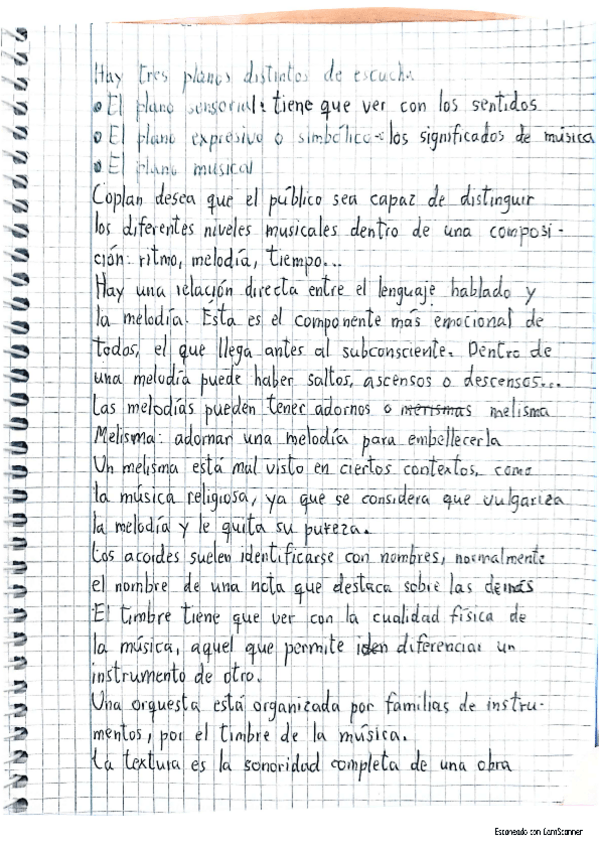 Hay tres planos distintos de escucha
• El plano sensorial: tiene que ver con los sentidos
• El plano expresivo o simbólico: los significados de música
• El plano musical
Coplan desea que el público sea capaz de distinguir
los diferentes niveles musicales dentro de una composi-
ción: ritmo, melodía, tiempo...
Hay una relación directa entre el lenguaje hablado y
la melodía. Ésta es el componente más emocional de
todos, el que llega antes al subconsciente. Dentro de
una melodía puede haber saltos, ascensos o descensos...
Las melodías pueden tener adornos o merismas melisma
Melisma: adornar una melodía para embellecerla
Un melisma está mal visto en ciertos contextos, como
la música religiosa, ya que se considera que vulgariza
la melodía y le quita su pureza.
Los acordes suelen identificarse con nombres, normalmente
el nombre de una nota que destaca sobre las demás
El timbre tiene que ver con la cualidad física de
la música, aquel que permite iden diferenciar un
instrumento de otro.
Una orquesta está organizada por familias de instru-
mentos, por el timbre de la música.
La textura es la sonoridad completa de una obra
Escaneado con CamScanner